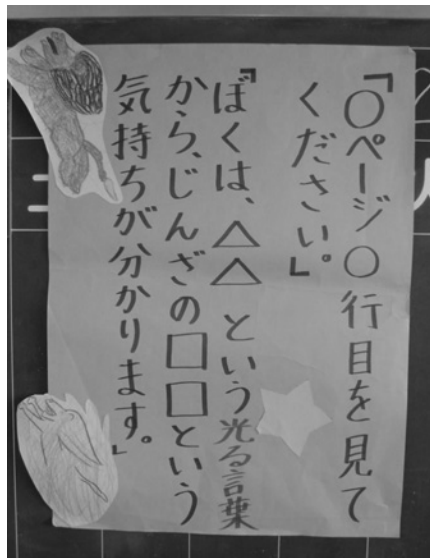 「〇ページ〇行目を見て
ください。」
「ぼくは、△△という光る言葉
から、じんざの□□という
気持ちが分かります。」